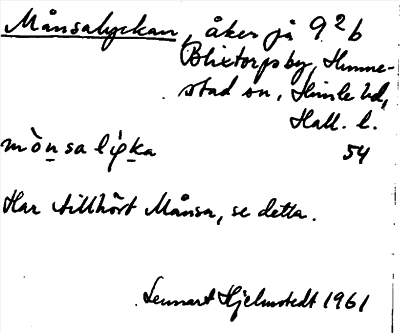 Månsalyckan, åker på 9²b
Blixtorpsby, Himme-
stad sn, Himle hd,
Hall. l.
mò̀n̲sa lýk̲a 54
Har tillhört Månsa, se detta.
Lennart Hjelmstedt 1961